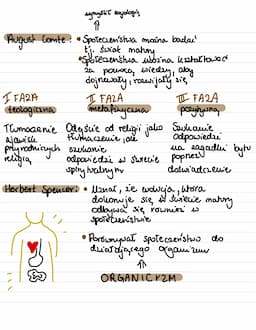 wymyślił socjologię
August Comte:
• Społeczeństwa można badać
tj. świat natury
• Społeczeństwa można kształtować
za pomocą wiedzy, aby
dojrzewały, rozwijały się
I FAZA
teologiczna
Tłumaczenie
zjawisk
przyrodniczych
religią
II FAZA
metafizyczna
Odejście od religii jako
tłumaczenie, ale
szukanie
odpowiedzi w świecie
spirytualnym
III FAZA
pozytywna
Szukanie
odpowiedzi
na zagadki bytu
poprzez
doświadczenie
Herbert Spencer:
• Uznał, że ewolucja, która
dokonuje się w świecie natury
odbywa się również w
społeczeństwie
• Porównywał społeczeństwo do
działającego organizmu
ORGANICYZM